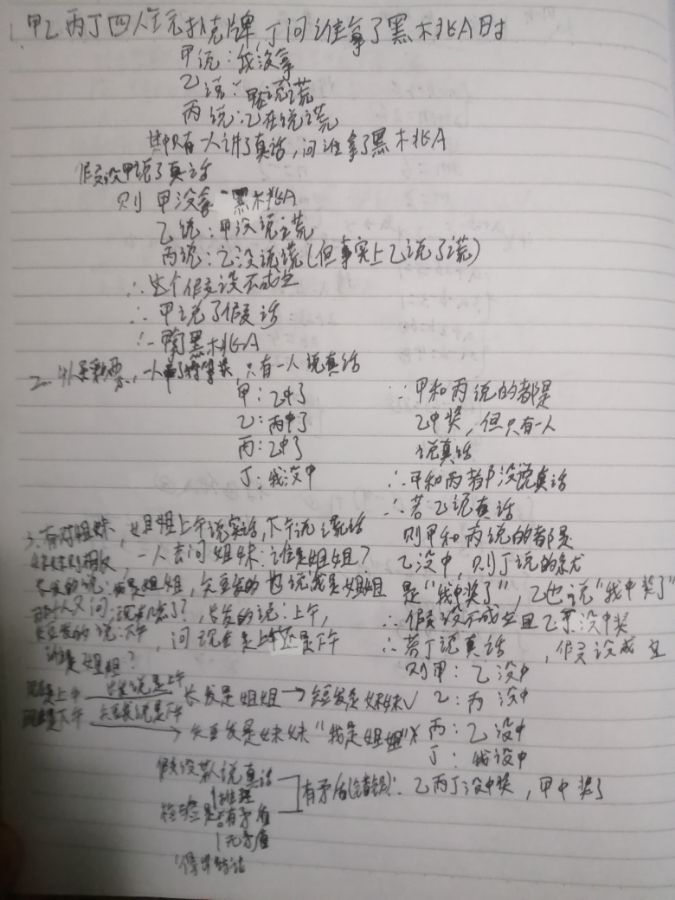 1. 甲乙丙丁四人玩扑克牌 丁问谁拿了黑桃A时
甲说:我没拿
乙话: 甲在说谎
丙说:乙在说谎
其中只有一人讲了真话,问谁拿了黑桃A
假设甲说了真话
则 甲没拿 黑桃A
乙说:甲没说谎
丙说:乙没说谎(但事实上乙说了谎)
∴这个假设不成立
∴甲说了假话
∴ 黑桃A
2. 彩票,一人中了特等奖,只有一人说真话
甲:乙中了
乙:丙中了
丙:乙中了
丁:我没中
∵甲和丙说的都是
乙中奖,但只有一人
说真话
∴甲和丙都没说真话
∴若乙说真话
则甲和丙说的都是
乙没中,则丁说的
是“我中奖了”,乙也说“我中奖了”
∴假设不成立且乙 没中奖
∴若丁说真话 ,假设成立
则甲:乙没中
乙:丙没中
丙:乙没中
丁:我没中
∴乙丙丁没中奖,甲中奖了
3. 有对姐妹,姐姐上午说实话,下午说谎话
妹妹则相反,一人去问姐妹:谁是姐姐?
长发的说:我是姐姐,短发的也说我是姐姐
那人又问:现在 了?,长发的说:上午,
短发的说:下午,问现在是上午还是下午
谁是姐姐?
现是上午 长发说是上午 长发是姐姐→短发是妹妹√
现是下午 短发说是下午 →短发是妹妹“我是姐姐”×
假设某人说真话
推理
检验是否有矛盾
有矛盾(错误)
无矛盾
得出结论